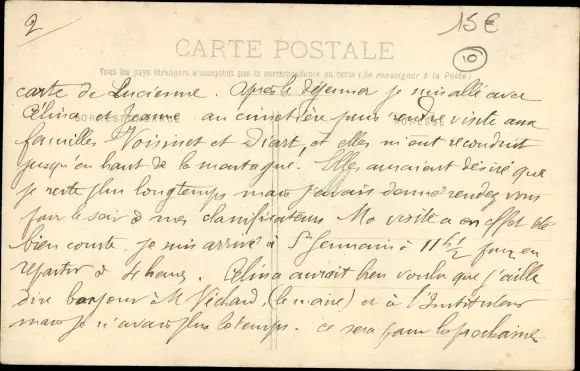 2
15€
10
CARTE POSTALE
Tous les pays étrangers n'acceptent pas la correspondance au recto (Se renseigner à la Poste)
CORRESPONDANCE
ADRESSE
carte de Lucienne. Après le déjeuner je suis allé avec
Célina et Jeanne au cimetière puis rendre visite aux
familles Voisinet et Diart, et elles m'ont reconduit
jusqu'en haut de la montagne. Elles auraient désiré que
je reste plus longtemps mais j'avais donné rendez vous
pour le soir à mes clarificateurs Ma visite a en effet été
bien courte, je suis arrivé à St Germain à 11 h 1/2 pour en
repartir à 4 heures. Célina aurait bien voulu que j'aille
dire bonjour à M Vichard, (le maire) et à l'Instituteur
mais je n'avais plus le temps. ce sera pour la prochaine